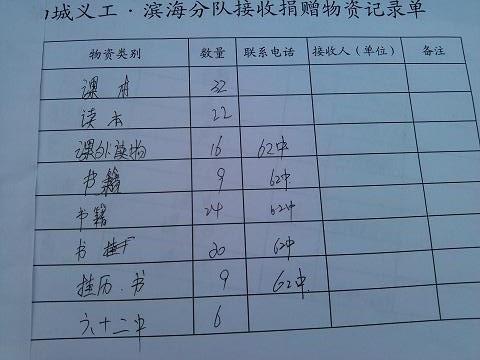 城义工·滨海分队接收捐赠物资记录单
物资类别 数量 联系电话 接收人（单位） 备注
课本 32
读本 22
课外读物 16 62中
书籍 9 62中
书籍 24 62中
书 20 62中
挂历.书 9 62中
六十二中 6